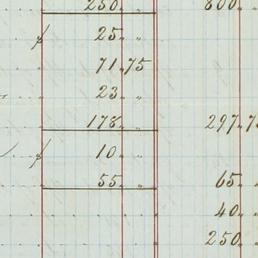 250 " 800 "
25 "
71 75
23 "
178 " 297 7
10 "
55 " 65 "
40 "
250